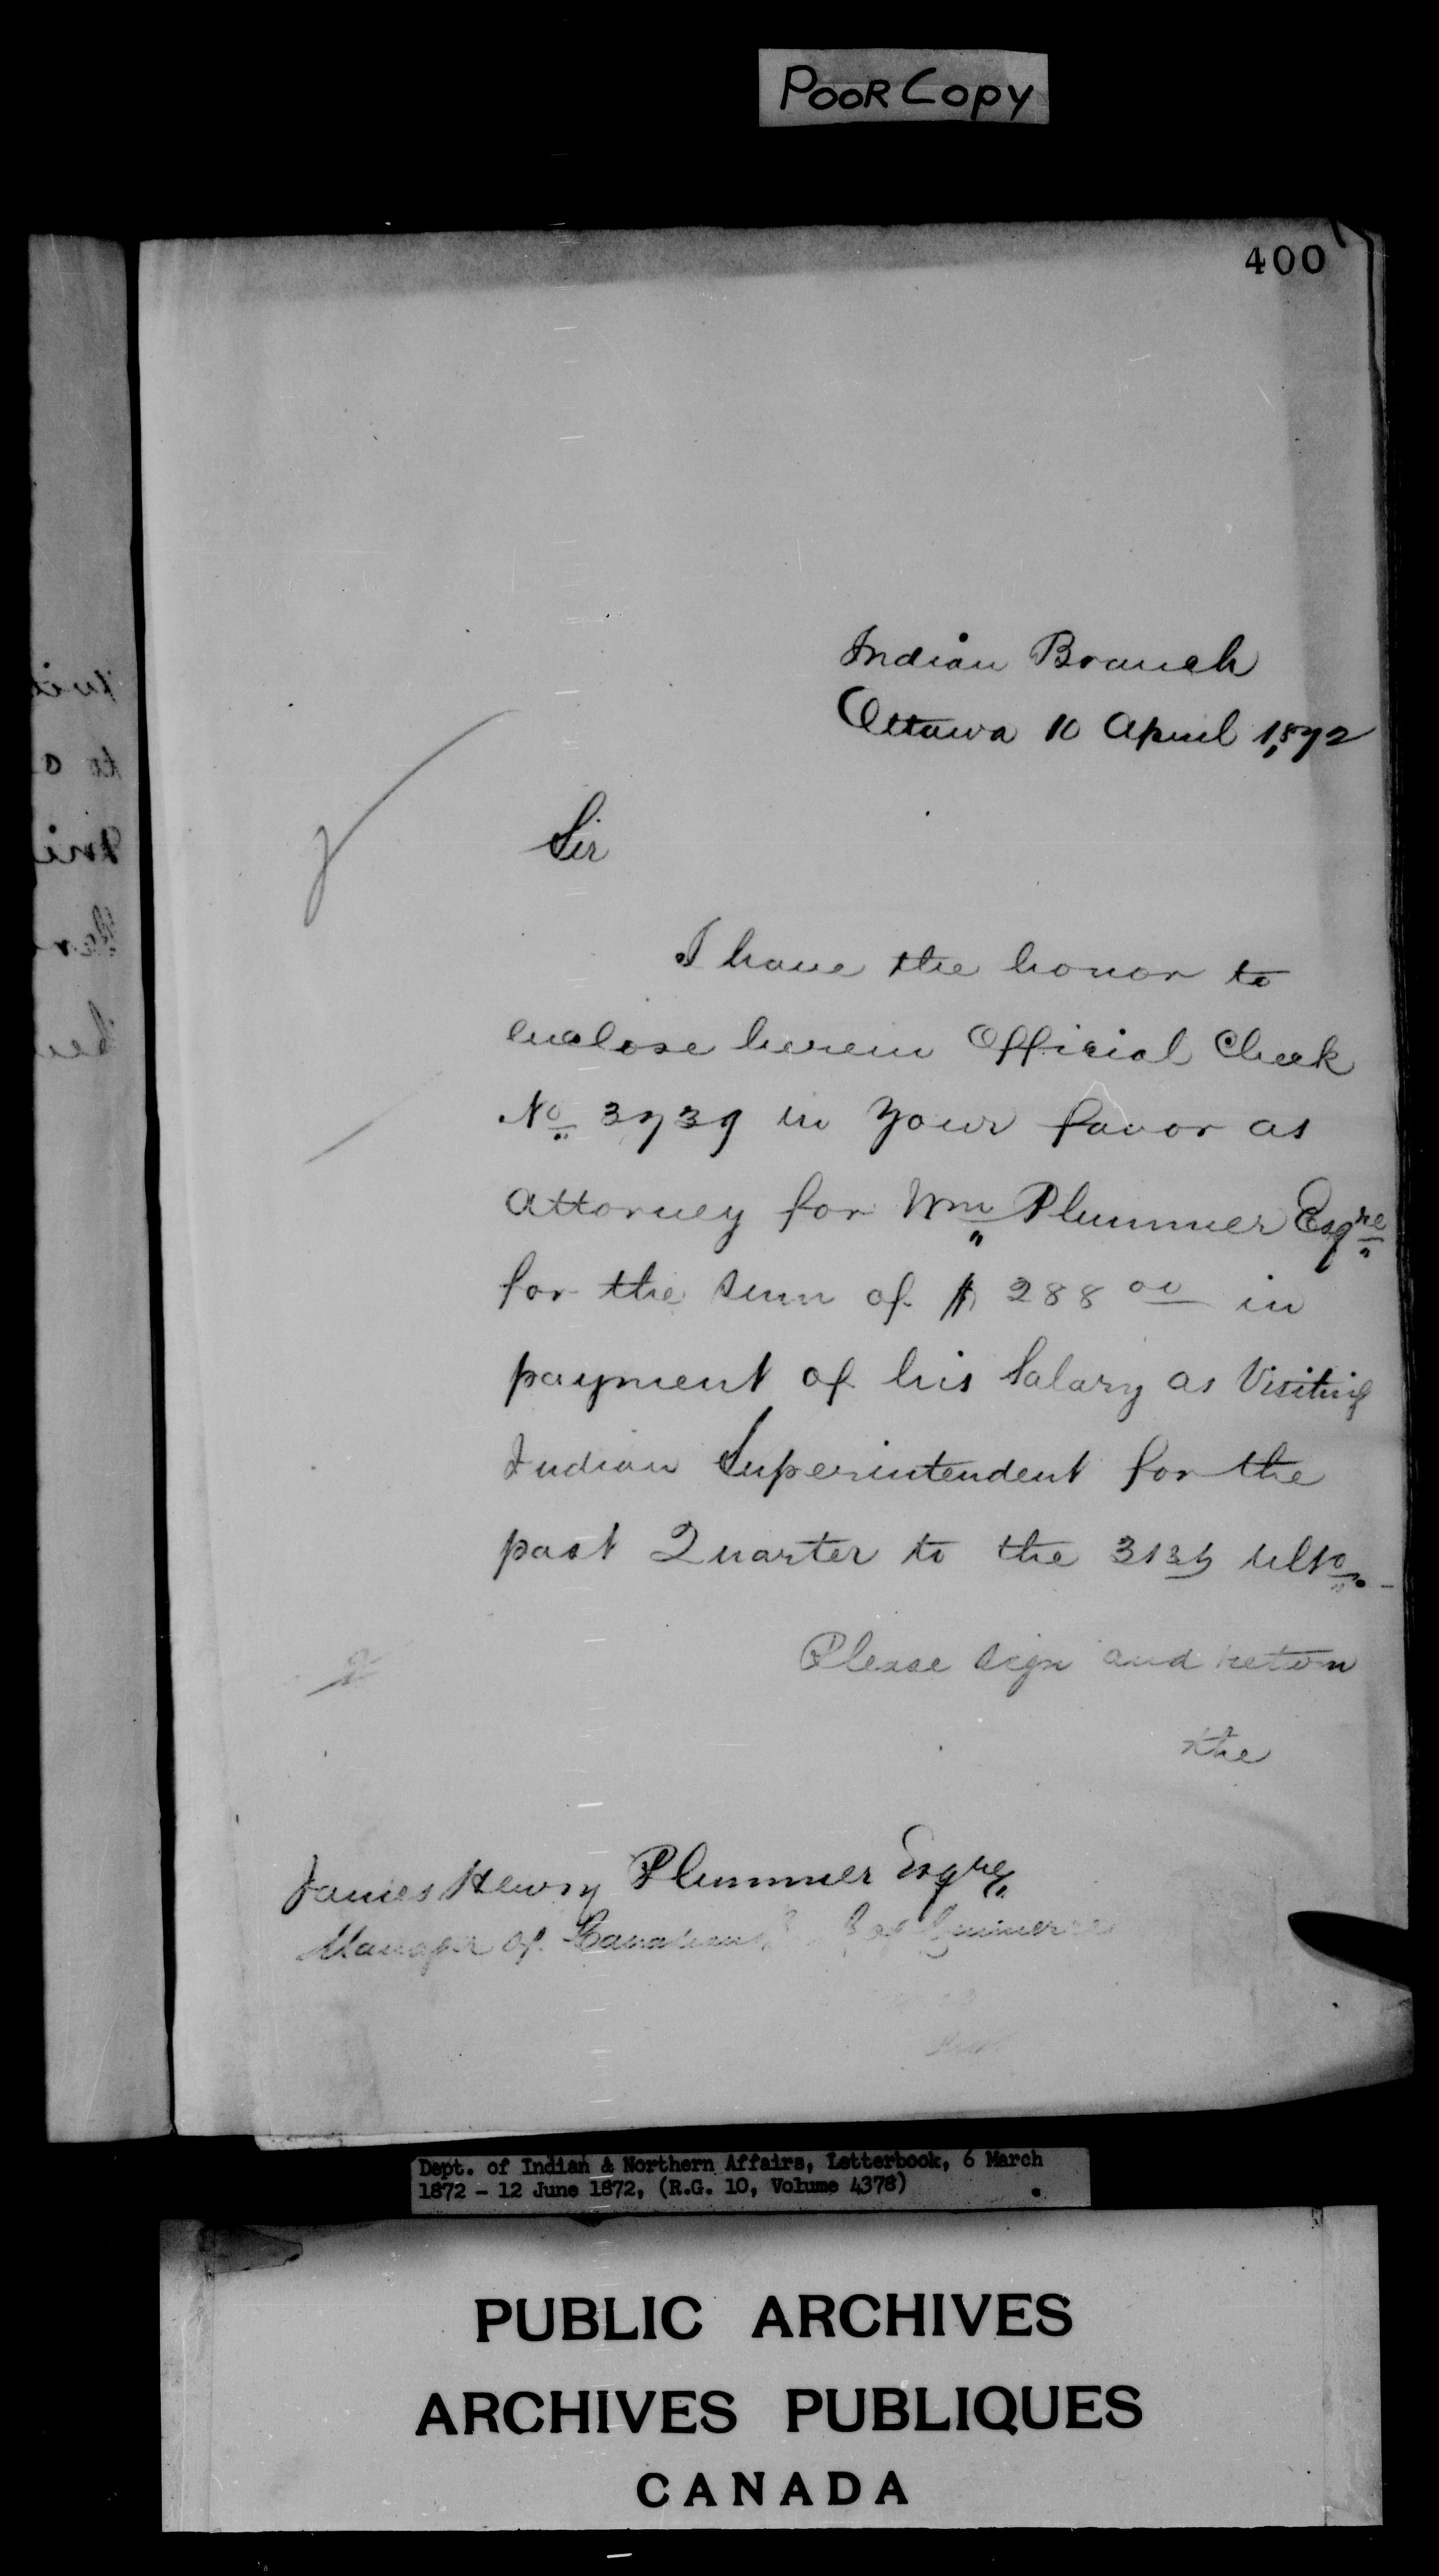 POOR COPY
400
Indian Branch
Ottawa 10 April 1872
Sir
I have the honor to
enclose herein Official Check
No 3739 in your favor as
Attorney for Wm Plummer Esqre
for the sum of $ 288 00 in
payment of his Salary as Visiting
Indian Superintendent for the
past Quarter to the 31st ulto.
Please sign and return
the
James Henry Plummer Esqre
Manager of Commerce
Dept. of Indian & Northern Affairs, Letterbook, 6 March
1872 - 12 June 1872, (R.G. 10, Volume 4378)
PUBLIC ARCHIVES
ARCHIVES PUBLIQUES
CANADA